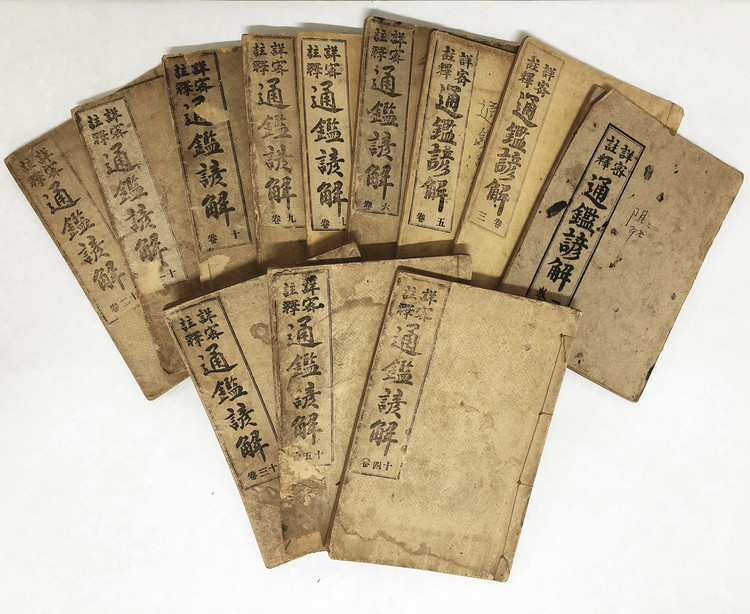 詳密
註釋
通鑑諺解
十二卷
詳密
註釋
通鑑諺解
十一
詳密
註釋
通鑑諺解
十卷
詳密
註釋
通鑑諺解
九卷
詳密
註釋
通鑑諺解
卷
詳密
註釋
通鑑諺解
六卷
詳密
註釋
通鑑諺解
五卷
詳密
註釋
通鑑諺解
卷三
詳密
註釋
通鑑諺解
卷
詳密
註釋
通鑑諺解
十三卷
詳密
註釋
通鑑諺解
十五
詳密
註釋
通鑑諺解
十四卷